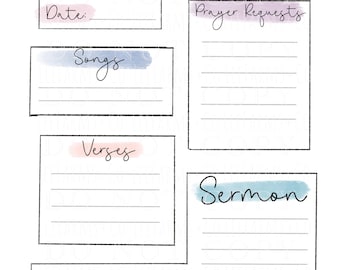 Date:
Prayer Requests
Songs
Verses
Sermon